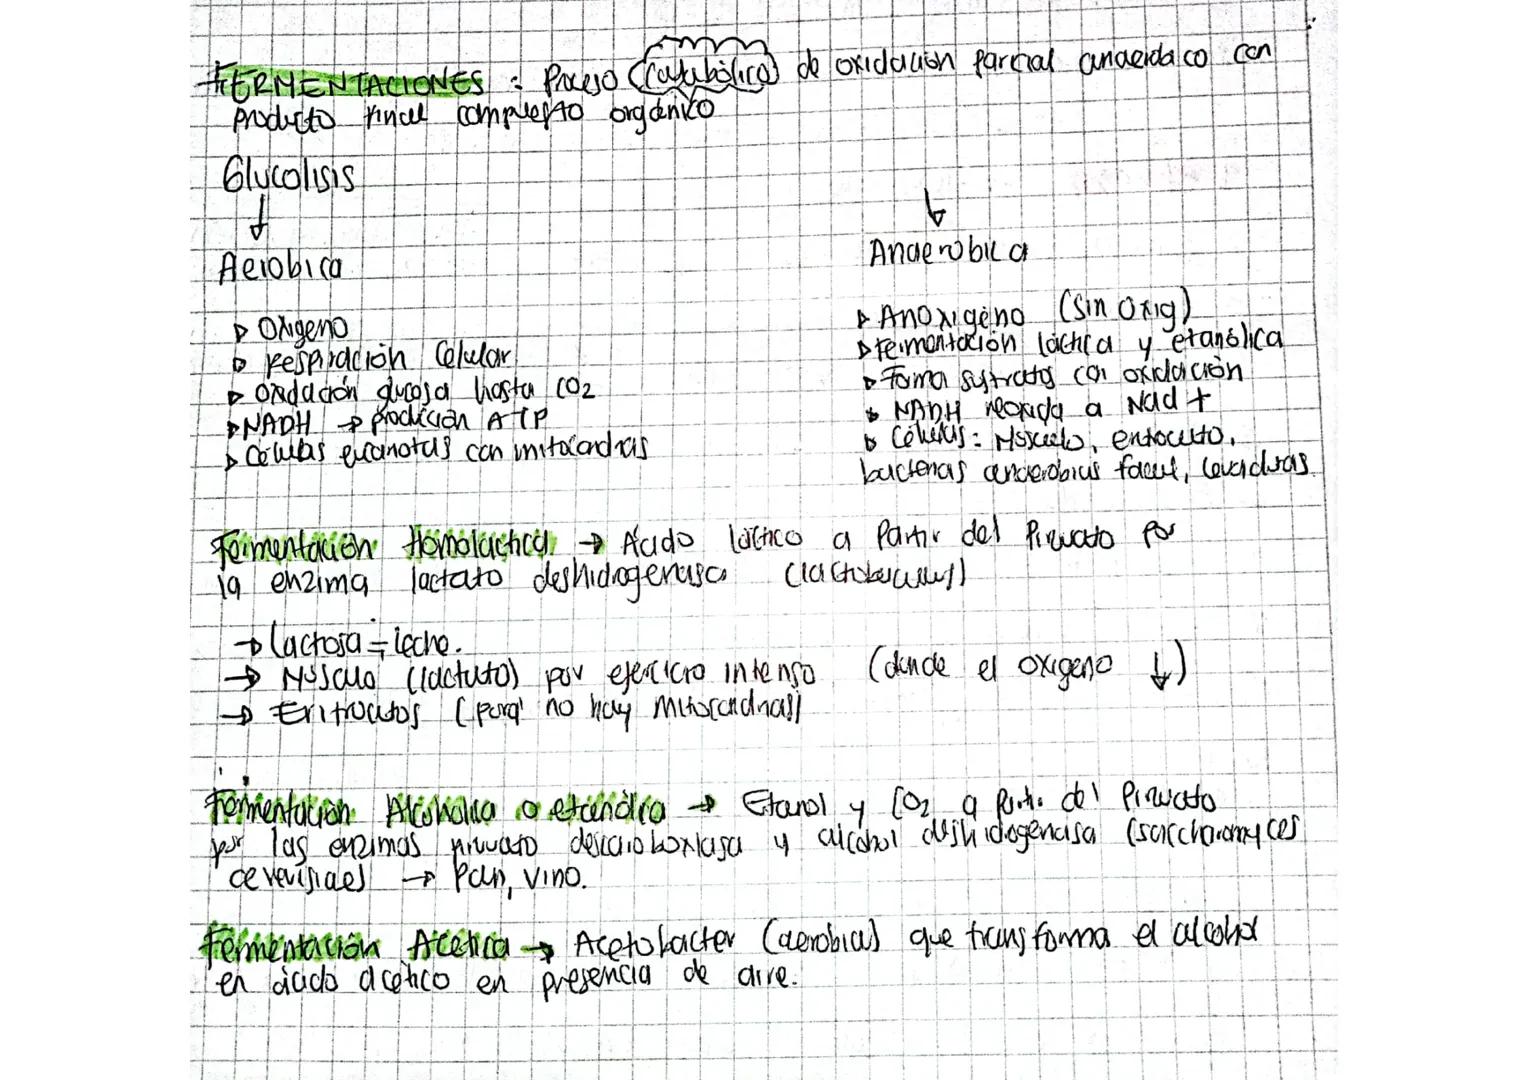 FERMENTACIONES : Proceso (catabólico) de oxidación parcial anaeróbico con
producto final compuesto orgánico
Glucolisis
↓ ↓
Aerobica
Anaerobica
▹ Oxigeno
▹ Respiración Celular
▹ Oxidación glucosa hasta CO2
▹ NADH → producción ATP
▹ Células eucariotas con mitocondrias
▹ Anoxigéno (Sin Oxig)
▹ Fermentación láctica y etanólica
▹ Forma sustratos con oxidación
▹ NADH reoxida a Nad +
▹ Células: Músculo, eritrocito,
bacterias anaerobias facul, levaduras.
Fermentación Homolactica → Ácido láctico a Partir del Piruvato por
la enzima lactato deshidrogenasa (lactobacillus)
→ Lactosa = leche.
→ Músculo (lactato) por ejercicio intenso (donde el oxigeno ↓)
→ Eritrocitos (porq' no hay mitocondrias)
Fermentación Alcoholica o etanólica → Etanol y CO2 a Partir del Piruvato
por las enzimas piruvato descarboxilasa y alcohol deshidogenasa (saccharomyces
cerevisiaes) → Pan, vino.
Fermentación Acetica → Acetobacter (aerobia) que transforma el alcohol
en ácido acético en presencia de aire.